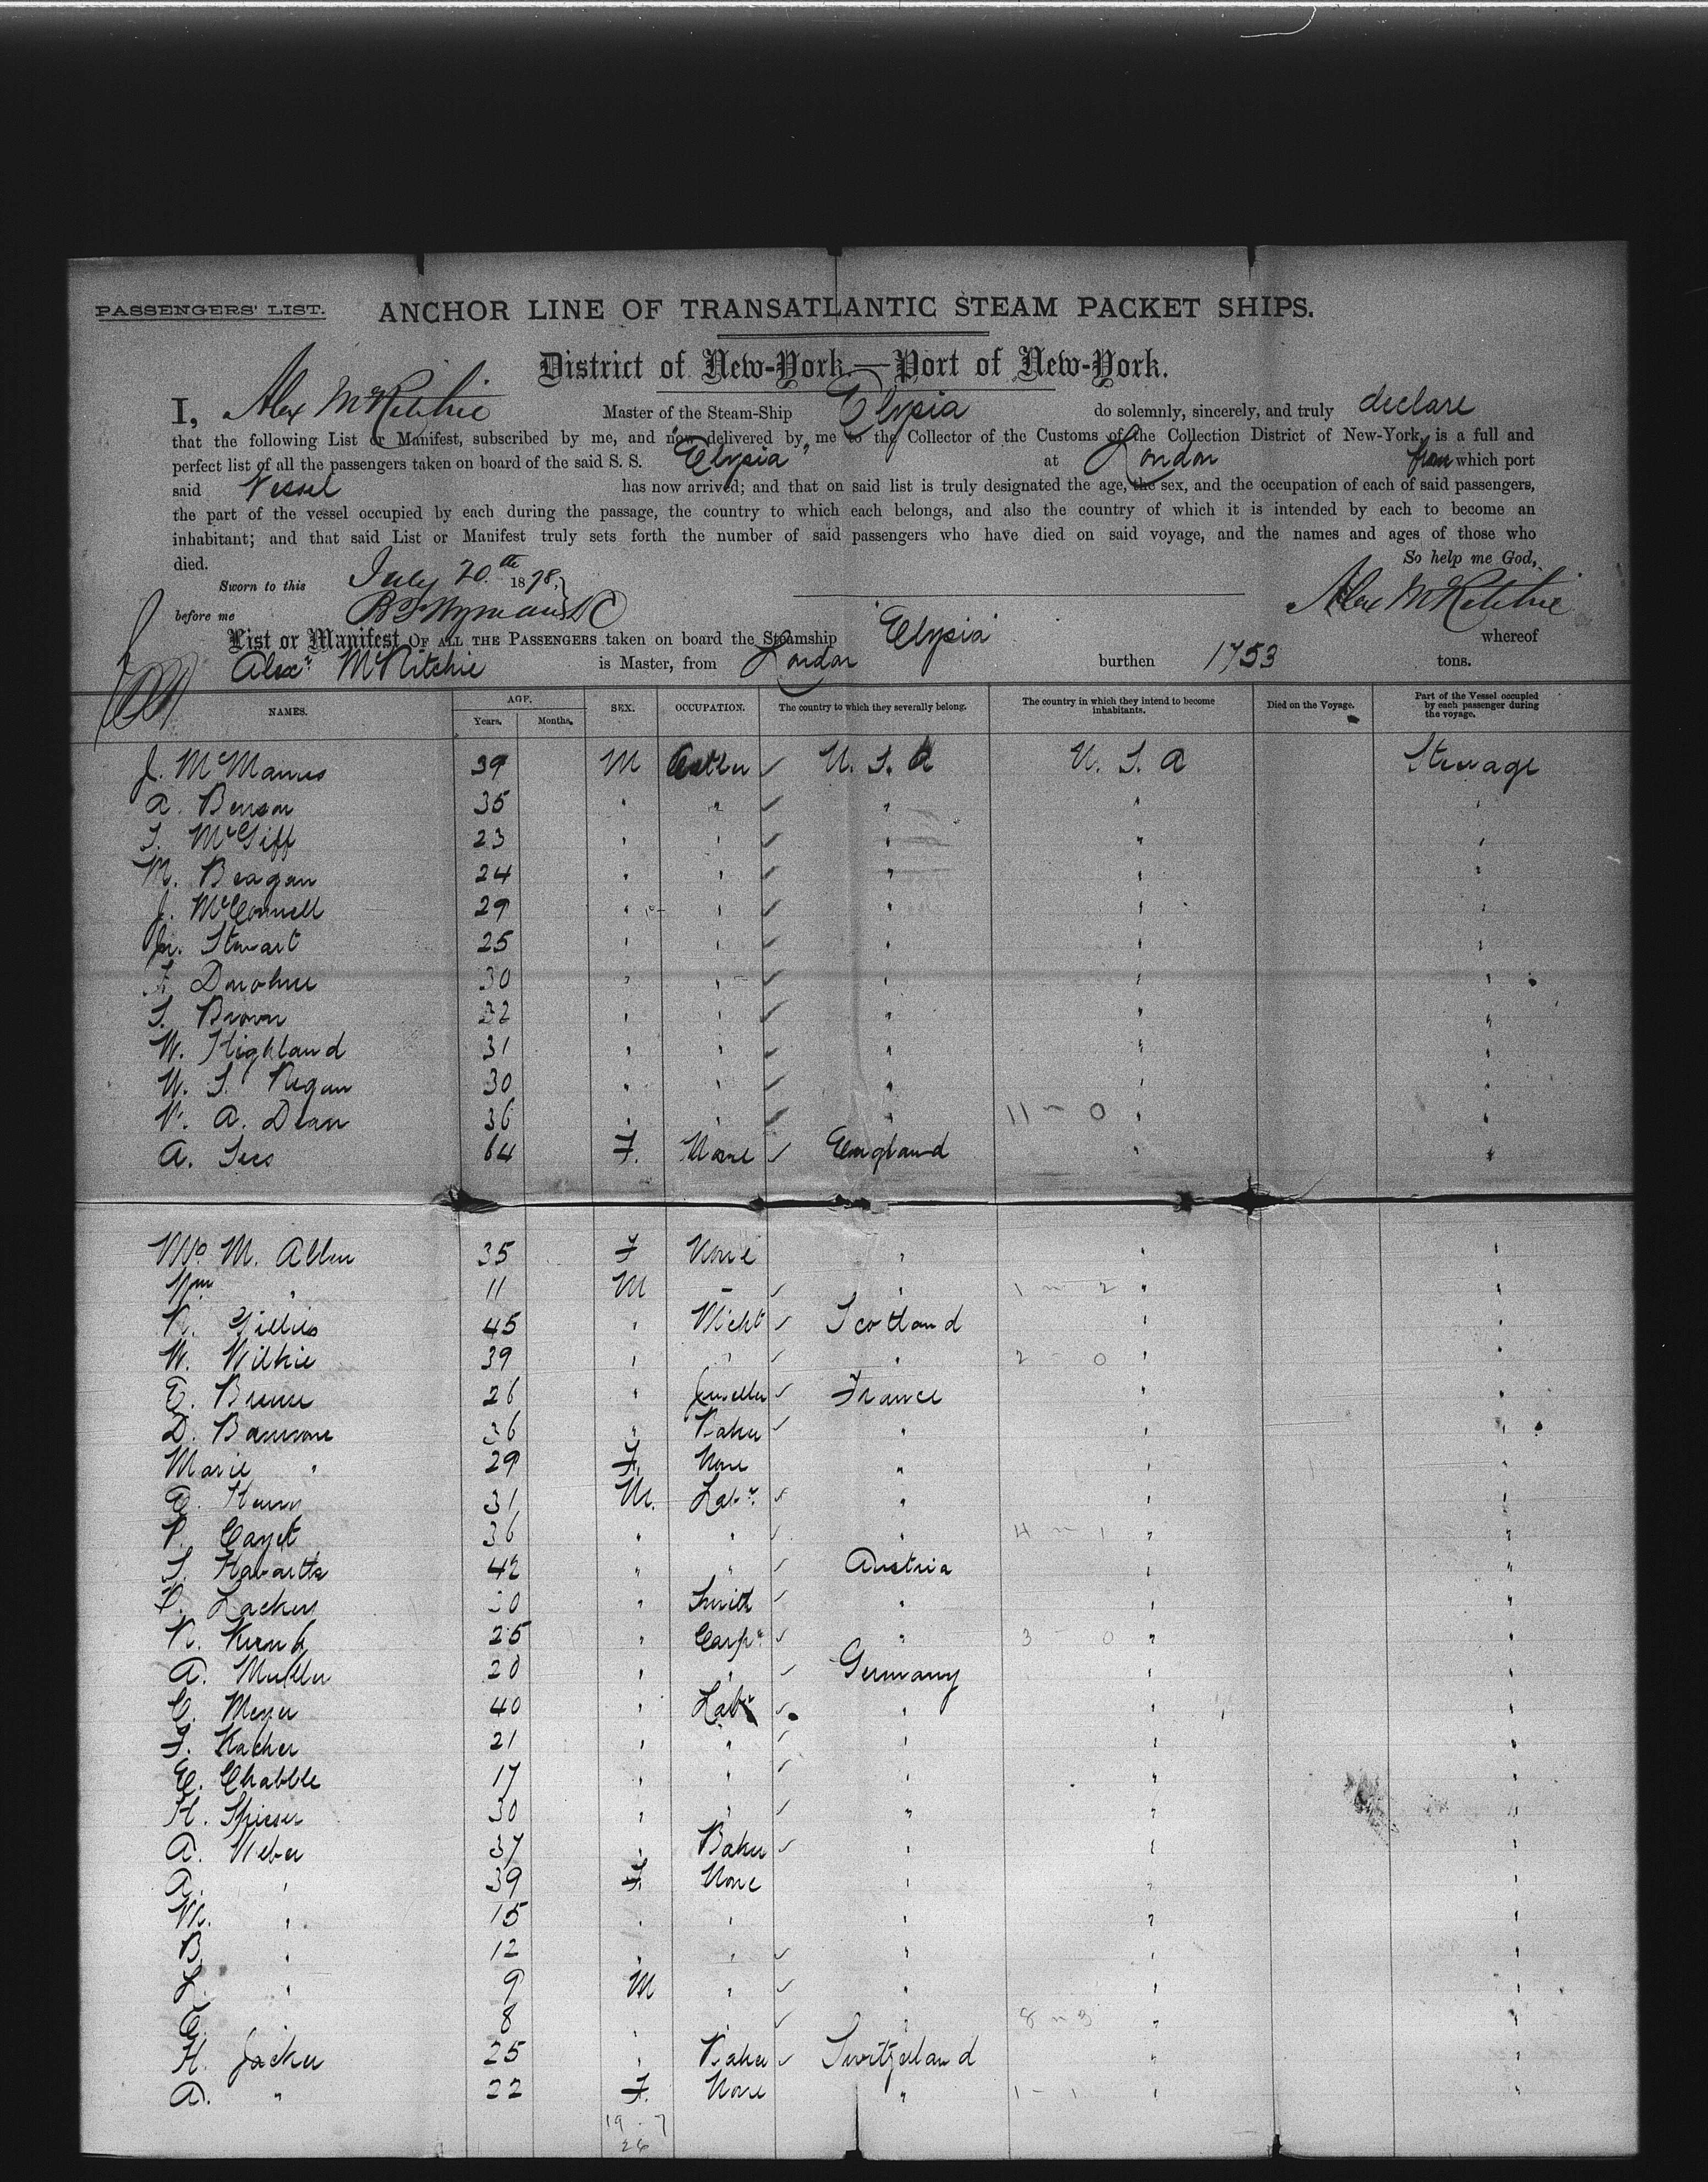 PASSENGERS' LIST. ANCHOR LINE OF TRANSATLANTIC STEAM PACKET SHIPS.
District of New-York.—Port of New-York.
I, Alex McRitchie Master of the Steam-Ship Elysia do solemnly, sincerely, and truly declare
that the following List or Manifest, subscribed by me, and now delivered by me to the Collector of the Customs of the Collection District of New-York, is a full and
perfect list of all the passengers taken on board of the said S. S. "Elysia" at London from which port
said Vessel has now arrived; and that on said list is truly designated the age, the sex, and the occupation of each of said passengers,
the part of the vessel occupied by each during the passage, the country to which each belongs, and also the country of which it is intended by each to become an
inhabitant; and that said List or Manifest truly sets forth the number of said passengers who have died on said voyage, and the names and ages of those who
died. So help me God,
Sworn to this July 20th 1878.
before me Alex McRitchie
List or Manifest OF ALL THE PASSENGERS taken on board the Steamship "Elysia" whereof
Alexr McRitchie is Master, from London burthen 1753 tons.
NAMES. AGE. Years. Months. SEX. OCCUPATION. The country to which they severally belong. The country in which they intend to become inhabitants. Died on the Voyage. Part of the Vessel occupied by each passenger during the voyage.
J. McManus 39 M U. S. A U. S. A Steerage
A. Benson 35 " " " " "
McGiff 23 " " " " "
M. Reagan 24 " " " " "
J. McConnell 29 " " " " "
Stewart 25 " " " " "
Donohue 30 " " " " "
Brown 32 " " " " "
W. Highland 31 " " " " "
Regan 30 " " " " "
A. Dean 36 " " " 11 - 0 " "
A. 64 F. None England " "
M. Allen 35 F None " " "
Wm " 11 M - " 1 - 2 " "
Gillies 45 " Scotland " "
W. Wilkie 39 " " " 2 - 0 " "
26 " Jeweller France " "
D. 36 " Baker " " "
Marie " 29 F. None " " "
31 M. Labr. " " "
36 " " " 4 - 1 " "
42 " " Austria " "
30 " Smith " " "
25 " Carpr " 3 - 0 " "
A. Muller 20 " " Germany " "
C. Meyer 40 " Labr " " "
F. Kacher 21 " " " " "
E. Chabble 17 " " " " "
H. Spiesser 30 " " " " "
A. Weber 37 " Baker " " "
A. " 39 F. None " " "
M. " 15 " " " " "
B. " 12 " " " " "
L. " 9 M " " " "
8 " " " 8 - 3 " "
H. Jacker 25 " Baker Switzerland " "
A. " 22 F. None " 1 - 1 " "
19 - 7
26